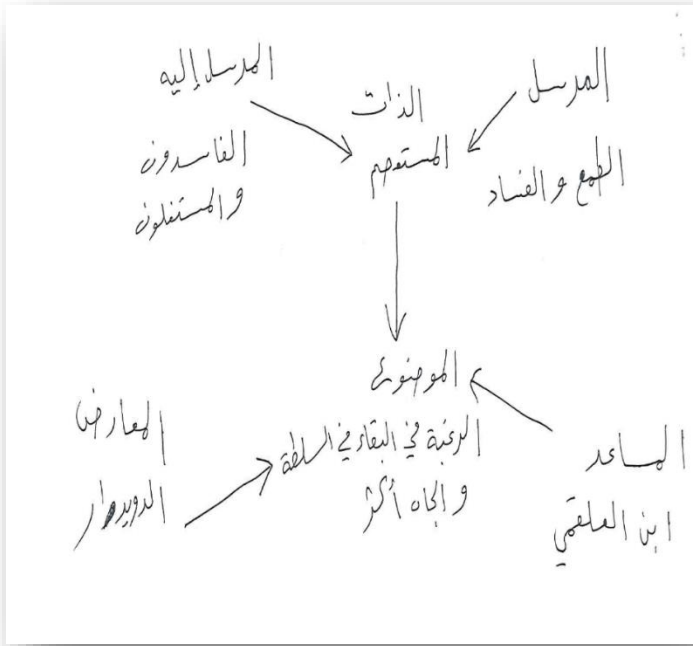 المرسل
الطمع و الفساد
الذات
المستعصم
المرسل إليه
الفاسدون
و المستغلون
الموضوع
الرغبة في البقاء في السلطة
و الجاه أكثر
المساعد
ابن العلقمي
المعارض
الدويدار